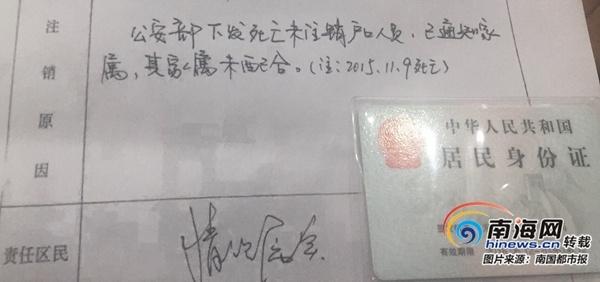 注销原因
公安部下发死亡未注销户口人员，已通知家
属，其家属未配合。(注：2015.11.9死亡)
责任区民
情况属实
中华人民共和国
居民身份证
有效期限
南海网
hinews.cn 转载
图片来源：南国都市报